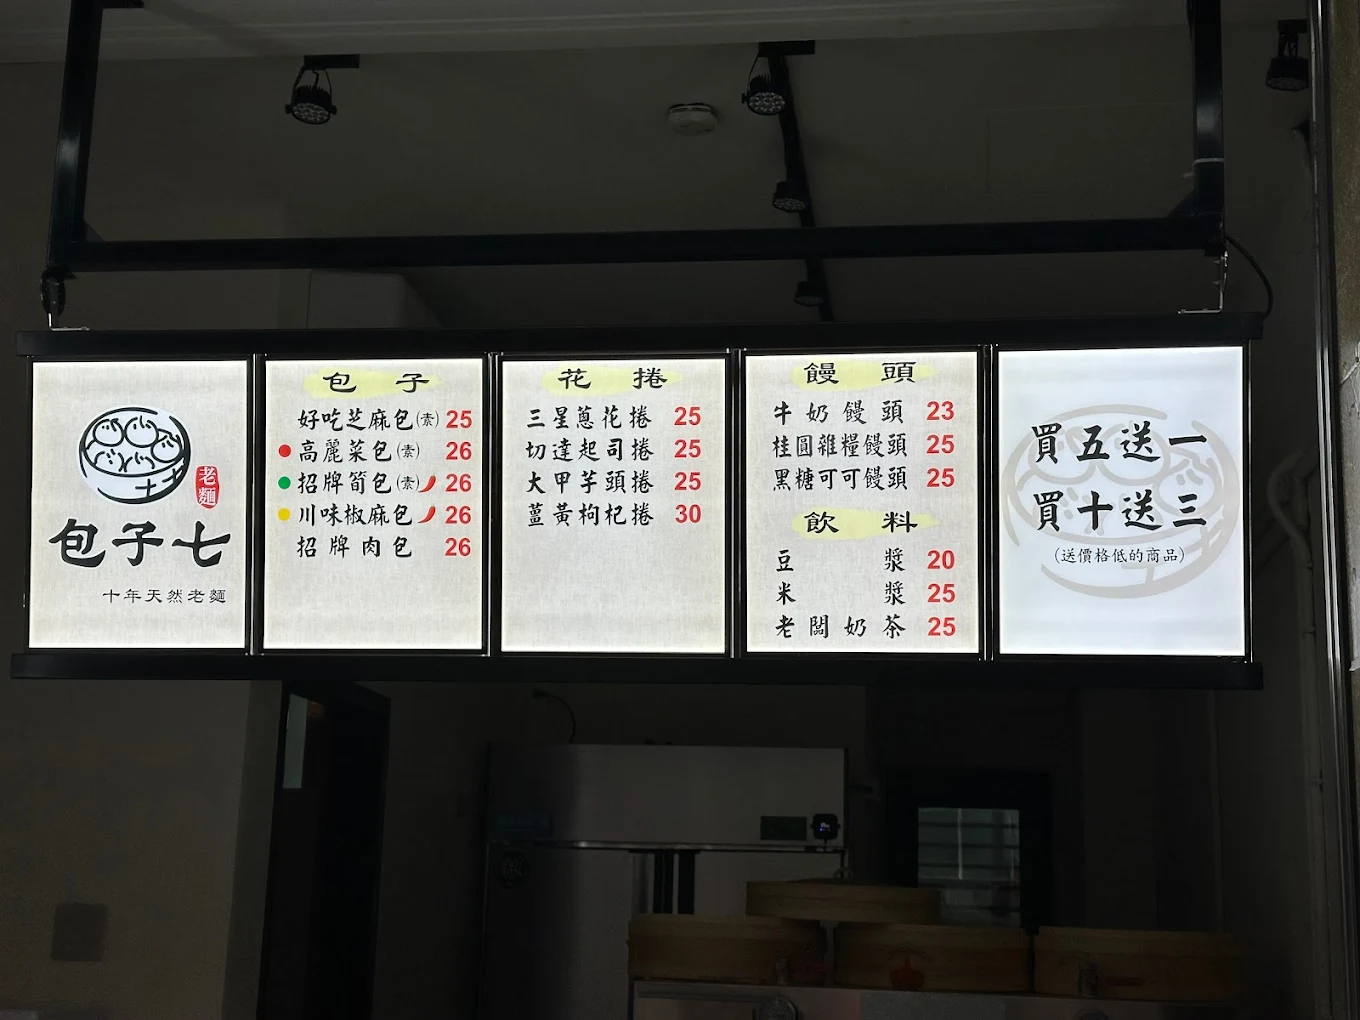 老麵
包子七
十年天然老麵
包子
好吃芝麻包(素) 25
高麗菜包(素) 26
招牌筍包(素) 26
川味椒麻包 26
招牌肉包 26
花捲
三星蔥花捲 25
切達起司捲 25
大甲芋頭捲 25
薑黃枸杞捲 30
饅頭
牛奶饅頭 23
桂圓雜糧饅頭 25
黑糖可可饅頭 25
飲料
豆漿 20
米漿 25
老闆奶茶 25
買五送一
買十送三
(送價格低的商品)